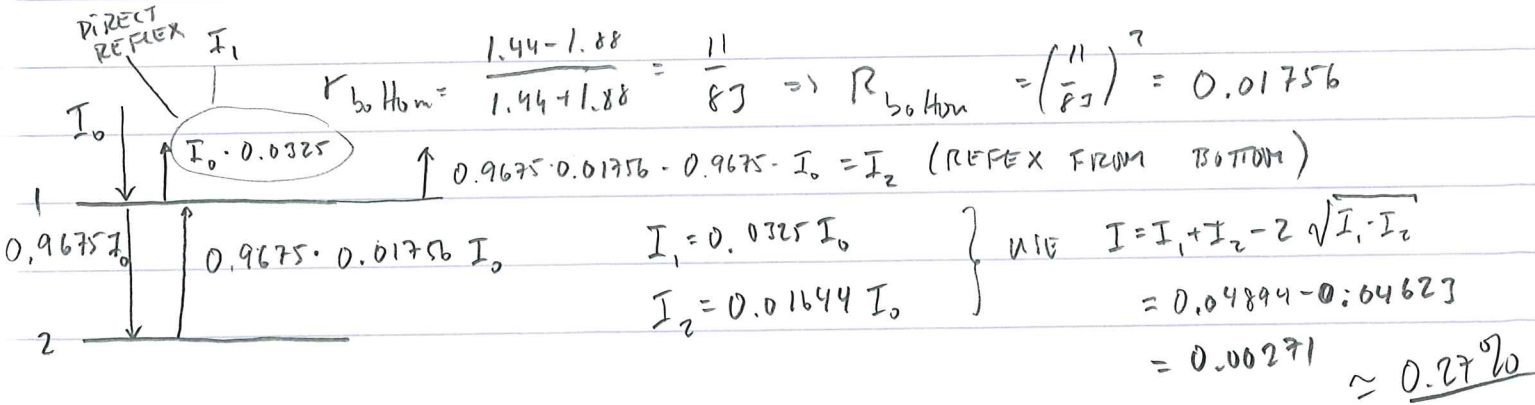 DIRECT
REFLEX I₁
r bottom = (1.44-1.88)/(1.44+1.88) = 11/83 => R bottom = (11/83)² = 0.01756
I₀
I₀·0.0325
0.9675·0.01756·0.9675·I₀ = I₂ (REFEX FROM BOTTOM)
1
0,9675I₀
0.9675·0.01756 I₀
I₁ = 0.0325 I₀
I₂ = 0.01644 I₀
} USE I = I₁+I₂-2√(I₁·I₂)
= 0.04894-0.04623
2
= 0.00271 ≃ 0.27%